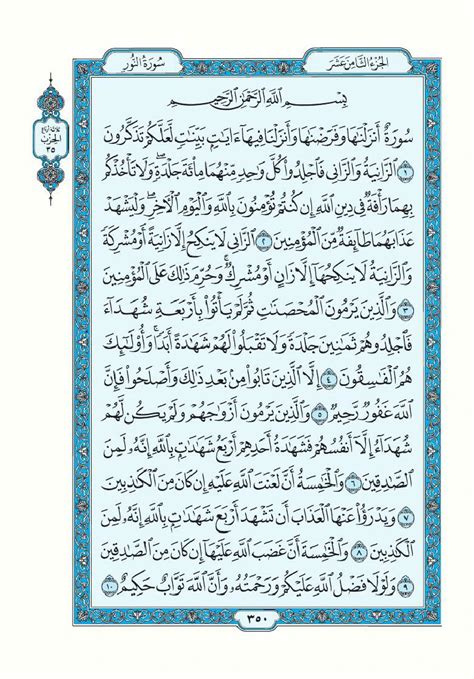 الجزء الثامن عشر
سورة النور
ثلاثة أرباع
الحزب
٣٥
بِسْمِ ٱللَّهِ ٱلرَّحْمَٰنِ ٱلرَّحِيمِ
سُورَةٌ أَنزَلْنَٰهَا وَفَرَضْنَٰهَا وَأَنزَلْنَا فِيهَآ ءَايَٰتٍۭ بَيِّنَٰتٍ لَّعَلَّكُمْ تَذَكَّرُونَ
١ ٱلزَّانِيَةُ وَٱلزَّانِي فَٱجْلِدُوا۟ كُلَّ وَٰحِدٍ مِّنْهُمَا مِا۟ئَةَ جَلْدَةٍ ۖ وَلَا تَأْخُذْكُم
بِهِمَا رَأْفَةٌ فِي دِينِ ٱللَّهِ إِن كُنتُمْ تُؤْمِنُونَ بِٱللَّهِ وَٱلْيَوْمِ ٱلْءَاخِرِ ۖ وَلْيَشْهَدْ
عَذَابَهُمَا طَآئِفَةٌ مِّنَ ٱلْمُؤْمِنِينَ ٢ ٱلزَّانِي لَا يَنكِحُ إِلَّا زَانِيَةً أَوْ مُشْرِكَةً
وَٱلزَّانِيَةُ لَا يَنكِحُهَآ إِلَّا زَانٍ أَوْ مُشْرِكٌ ۚ وَحُرِّمَ ذَٰلِكَ عَلَى ٱلْمُؤْمِنِينَ
٣ وَٱلَّذِينَ يَرْمُونَ ٱلْمُحْصَنَٰتِ ثُمَّ لَمْ يَأْتُوا۟ بِأَرْبَعَةِ شُهَدَآءَ
فَٱجْلِدُوهُمْ ثَمَٰنِينَ جَلْدَةً وَلَا تَقْبَلُوا۟ لَهُمْ شَهَٰدَةً أَبَدًا ۚ وَأُو۟لَٰٓئِكَ
هُمُ ٱلْفَٰسِقُونَ ٤ إِلَّا ٱلَّذِينَ تَابُوا۟ مِنۢ بَعْدِ ذَٰلِكَ وَأَصْلَحُوا۟ فَإِنَّ
ٱللَّهَ غَفُورٌ رَّحِيمٌ ٥ وَٱلَّذِينَ يَرْمُونَ أَزْوَٰجَهُمْ وَلَمْ يَكُن لَّهُمْ
شُهَدَآءُ إِلَّآ أَنفُسُهُمْ فَشَهَٰدَةُ أَحَدِهِمْ أَرْبَعُ شَهَٰدَٰتٍۭ بِٱللَّهِ إِنَّهُۥ لَمِنَ
ٱلصَّٰدِقِينَ ٦ وَٱلْخَٰمِسَةُ أَنَّ لَعْنَتَ ٱللَّهِ عَلَيْهِ إِن كَانَ مِنَ ٱلْكَٰذِبِينَ
٧ وَيَدْرَؤُا۟ عَنْهَا ٱلْعَذَابَ أَن تَشْهَدَ أَرْبَعَ شَهَٰدَٰتٍۭ بِٱللَّهِ إِنَّهُۥ لَمِنَ
ٱلْكَٰذِبِينَ ٨ وَٱلْخَٰمِسَةَ أَنَّ غَضَبَ ٱللَّهِ عَلَيْهَآ إِن كَانَ مِنَ ٱلصَّٰدِقِينَ
٩ وَلَوْلَا فَضْلُ ٱللَّهِ عَلَيْكُمْ وَرَحْمَتُهُۥ وَأَنَّ ٱللَّهَ تَوَّابٌ حَكِيمٌ ١٠
٣٥٠